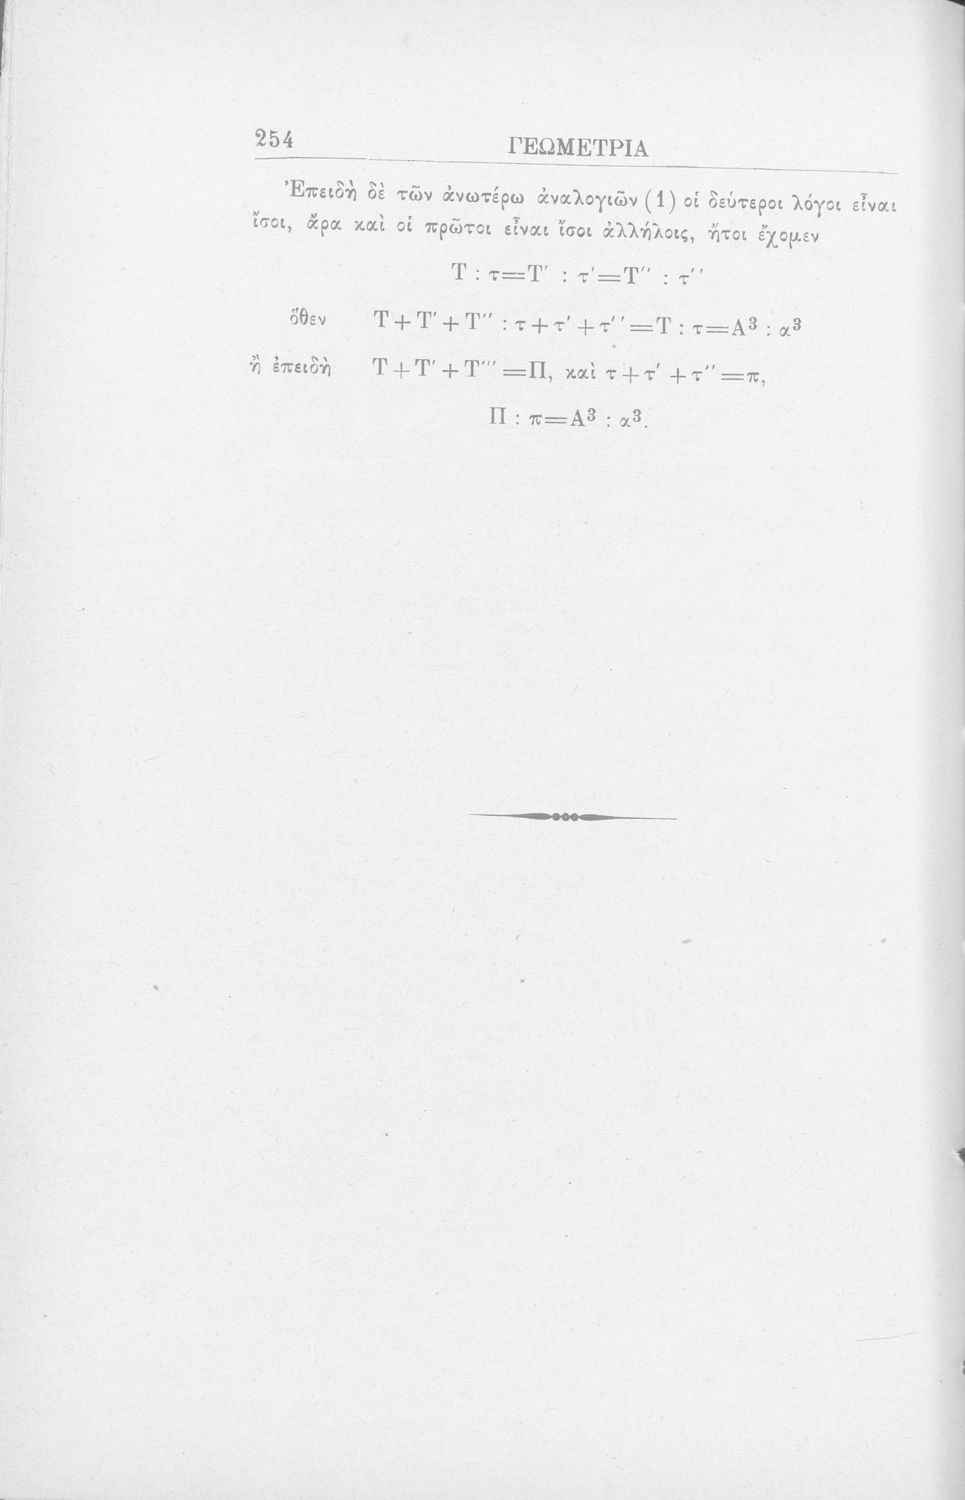 254 ΓΕΩΜΕΤΡΙΑ
Ἐπειδὴ δὲ τῶν ἀνωτέρω ἀναλογιῶν (1) οἱ δεύτεροι λόγοι εἶναι
ἴσοι, ἄρα καὶ οἱ πρῶτοι εἶναι ἴσοι ἀλλήλοις, ἤτοι ἔχομεν
Τ : τ=Τ′ : τ′=Τ″ : τ″
ὅθεν Τ+Τ′+Τ″ : τ+τ′+τ″=Τ : τ=Α³ : α³
ἢ ἐπειδὴ Τ+Τ′+Τ‴=Π, καὶ τ+τ′+τ″=π,
Π : π=Α³ : α³.